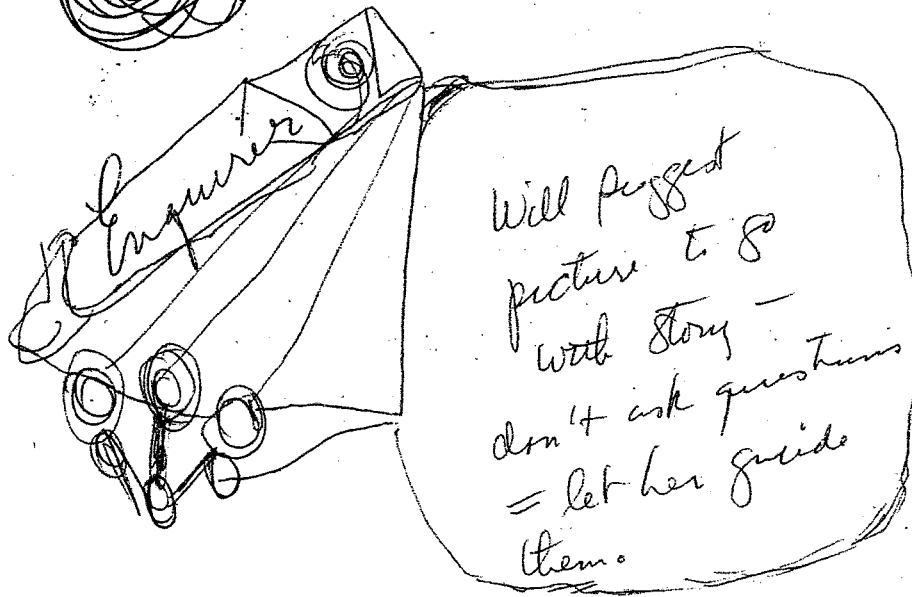 Enquirer
Will suggest
picture to go
with story –
don't ask questions
= let her guide
them.